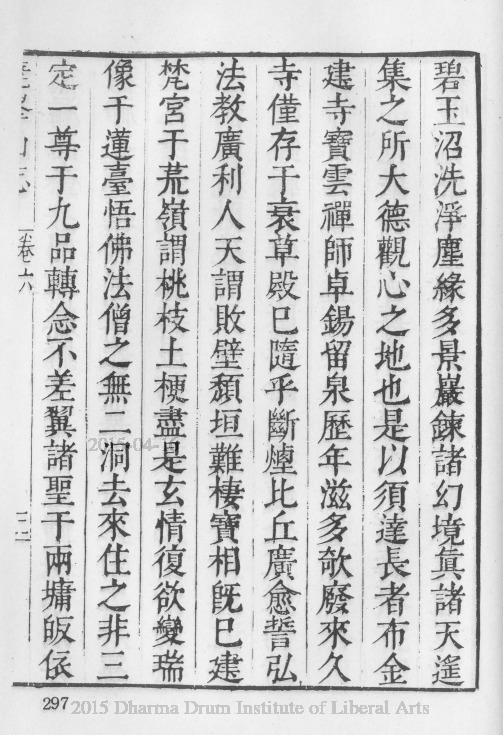 碧玉沼洗淨塵緣多景巖鍊諸幻境眞諸天遙
集之所大德觀心之地也是以須達長者布金
建寺寶雲禪師卓錫留泉歷年滋多欹廢來久
寺僅存于衰草殿已隨乎斷煙比丘廣愈誓弘
法教廣利人天謂敗壁頹垣難棲寶相旣已建
梵宮于荒嶺謂桃枝土梗盡是玄情復欲變瑞
像于蓮臺悟佛法僧之無二洞去來住之非三
定一尊于九品轉念不差翼諸聖于兩墉皈依
卷六
297
2015 Dharma Drum Institute of Liberal Arts